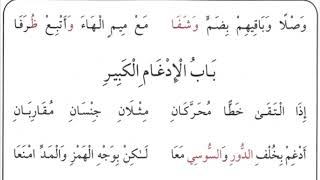 وَصْلًا وَبَاقِيهِمْ بِضَمٍّ وَشَفَا مَعْ مِيمِ الْهَاءَ وَأَتْبِعْ ظُرَفَا
بَابُ الْإِدْغَامِ الْكَبِيرِ
إِذَا الْتَقَىٰ خَطًّا مُحَرَّكَانِ مِثْلَانِ جِنْسَانِ مُقَارِبَانِ
أَدْغِمْ بِخُلْفِ الدُّورِ وَالسُّوسِي مَعَا لَـٰكِنْ بِوَجْهِ الْهَمْزِ وَالْمَدِّ امْنَعَا